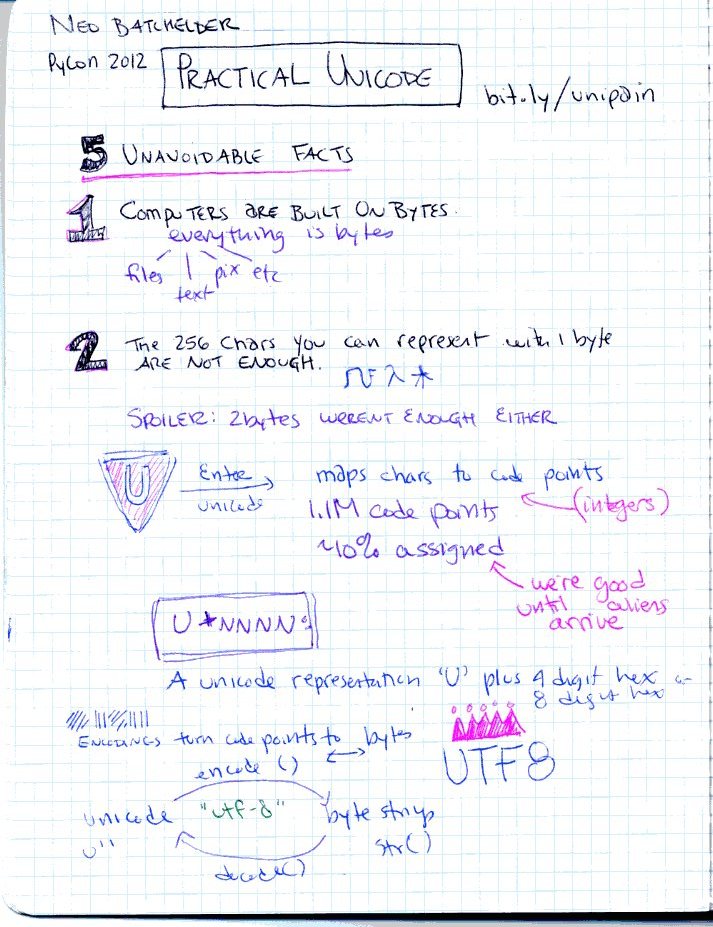 NED BATCHELDER
PyCon 2012
PRACTICAL UNICODE
bit.ly/unipain
5 UNAVOIDABLE FACTS
1 COMPUTERS ARE BUILT ON BYTES.
everything is bytes
files | pix etc
text
2 The 256 chars you can represent with 1 byte
ARE NOT ENOUGH.
SPOILER: 2bytes WERENT ENOUGH EITHER
U
Enter
unicode
maps chars to code points
(integers)
1.1M code points
~10% assigned
we're good
until aliens
arrive
U+NNNN
A unicode representation 'U' plus 4 digit hex or
8 digit hex
ENCODINGS turn code points to bytes
UTF8
encode ()
unicode "utf-8" byte strings
u'' str()
decode()